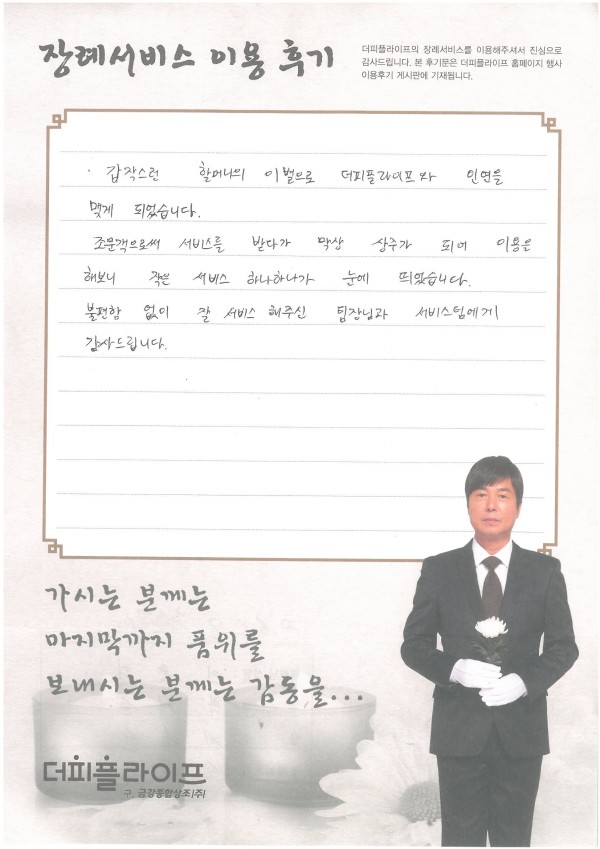 장례서비스 이용 후기
더피플라이프의 장례서비스를 이용해주셔서 진심으로
감사드립니다. 본 후기문은 더피플라이프 홈페이지 행사
이용후기 게시판에 기재됩니다.
· 갑작스런 할머니의 이별으로 더피플라이프와 인연을
맺게 되었습니다.
조문객으로써 서비스를 받다가 막상 상주가 되어 이용을
해보니 작은 서비스 하나하나가 눈에 띄었습니다.
불편함 없이 잘 서비스 해주신 팀장님과 서비스팀에게
감사드립니다.
가시는 분께는
마지막까지 품위를
보내시는 분께는 감동을...
더피플라이프
구. 금강종합상조(주)